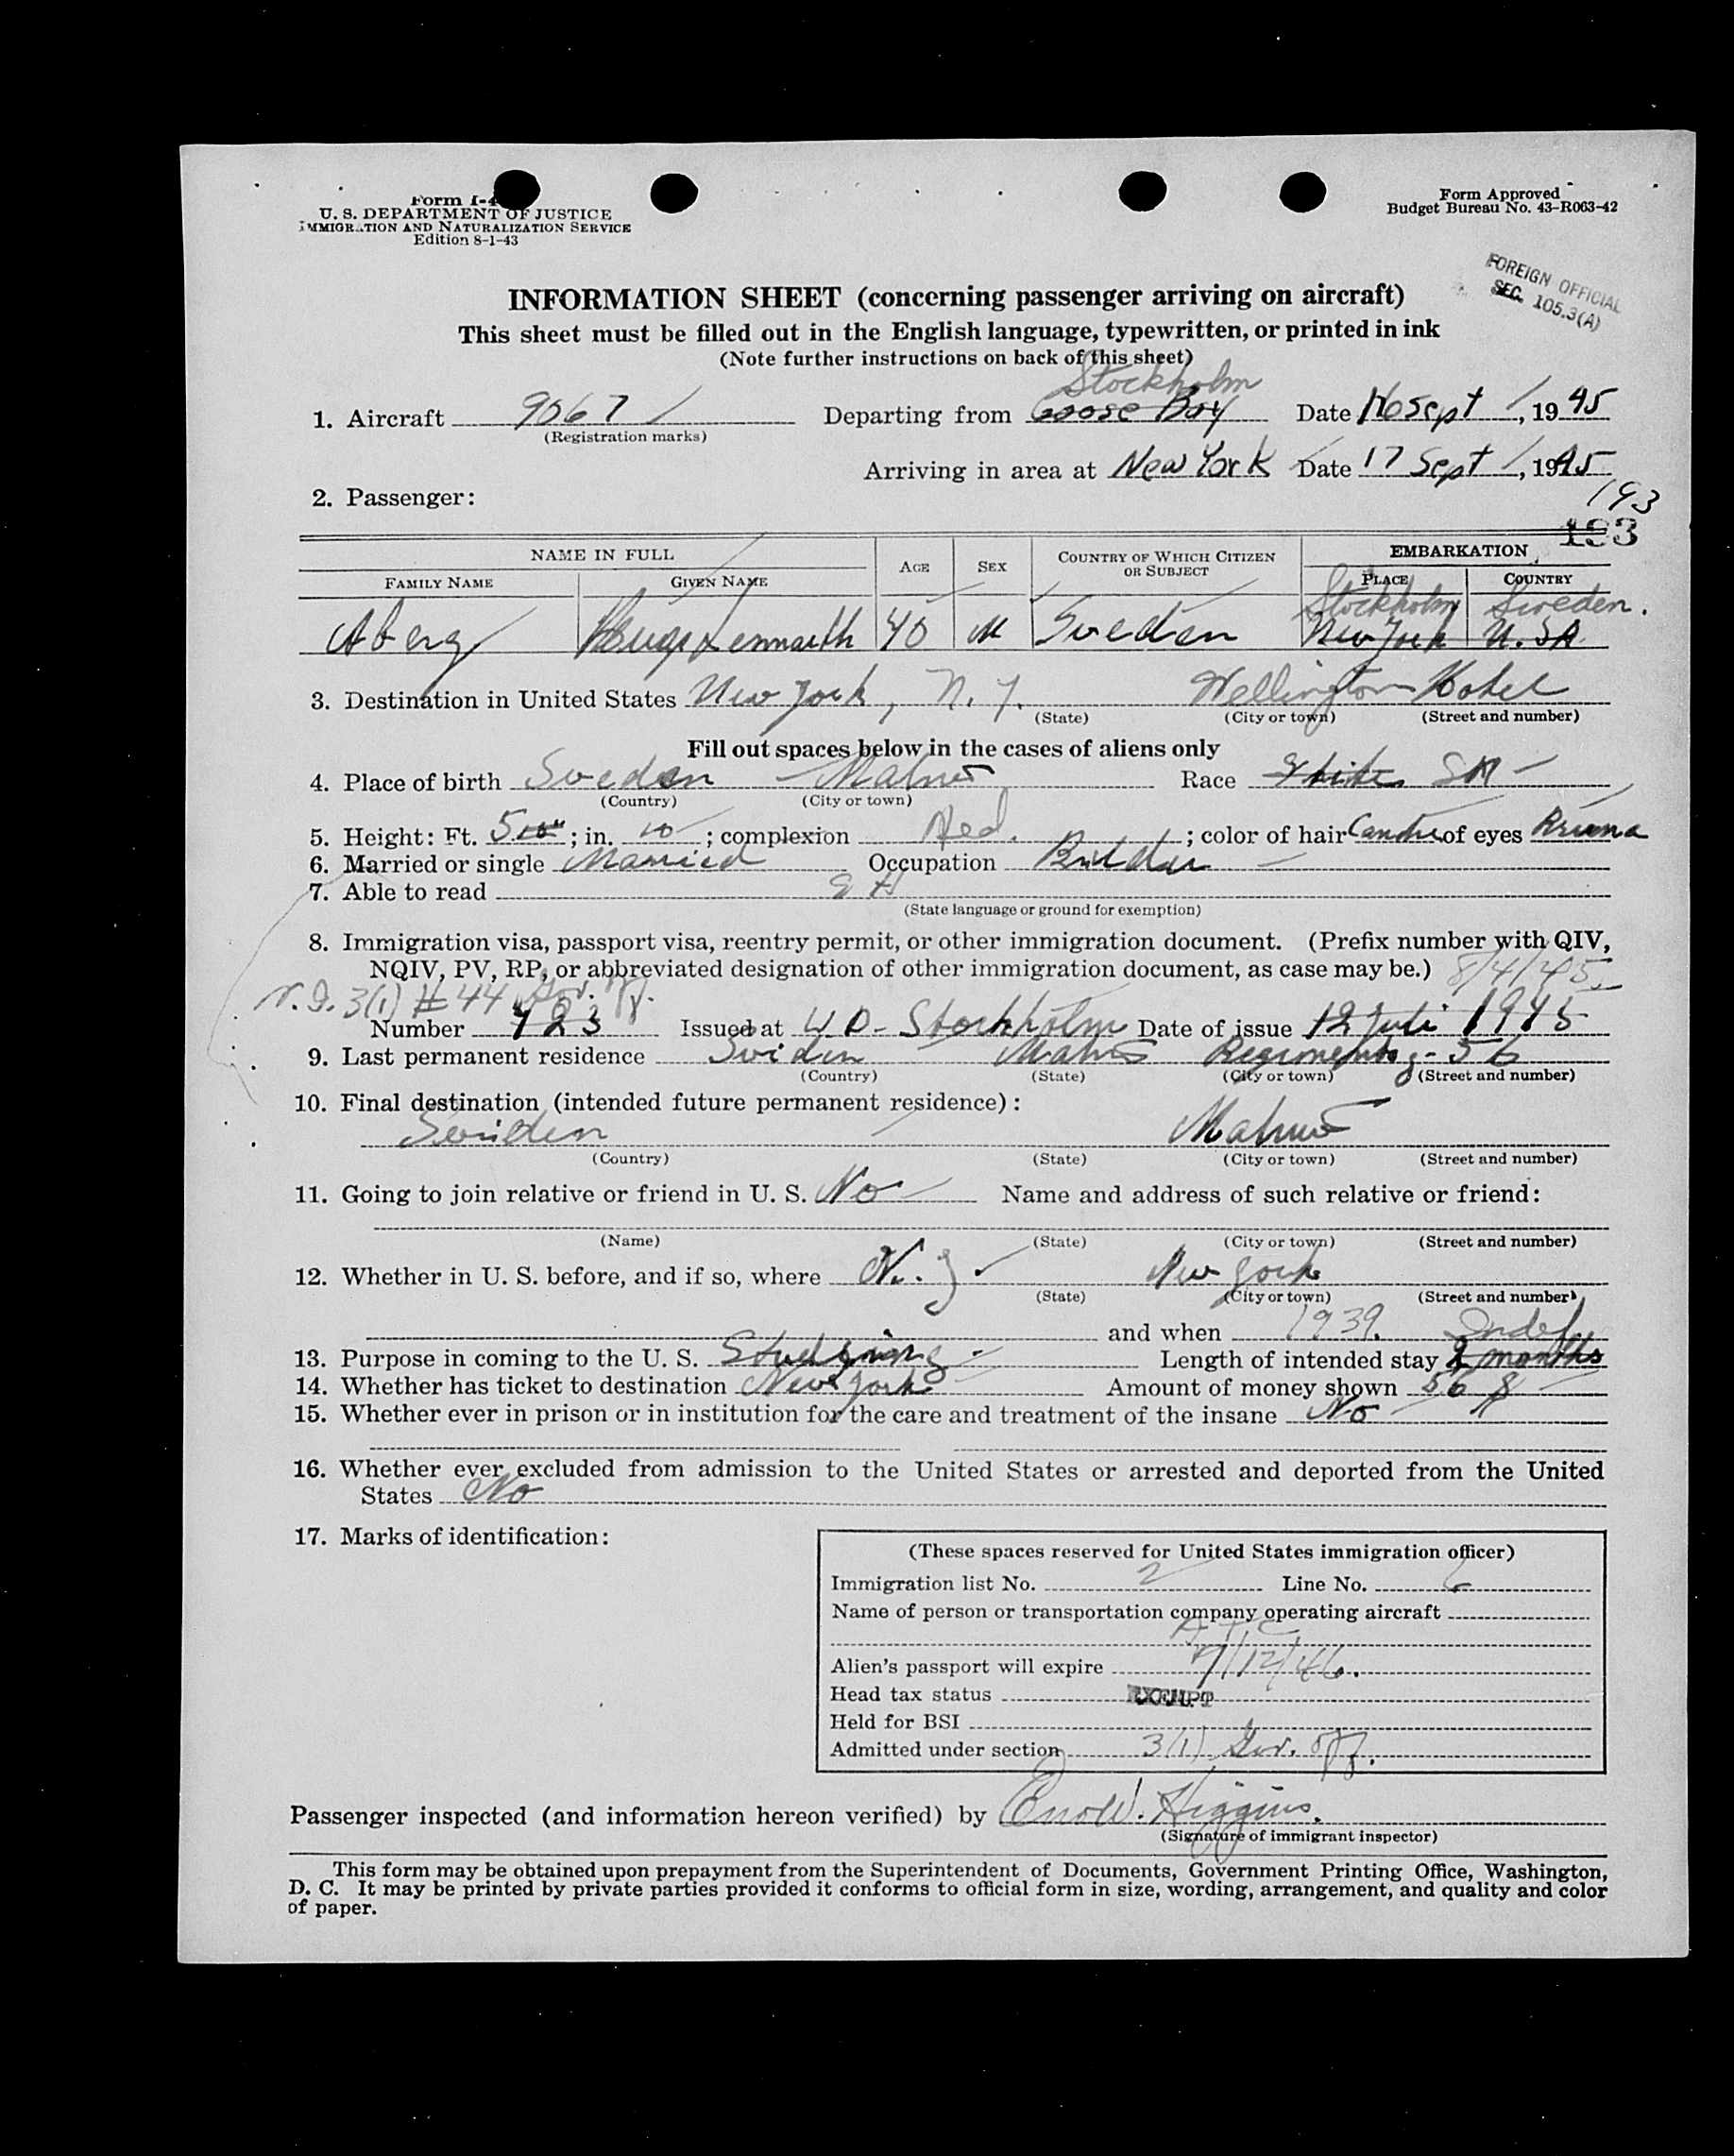 Form I-4
U. S. DEPARTMENT OF JUSTICE
IMMIGRATION AND NATURALIZATION SERVICE
Edition 8-1-43
Form Approved
Budget Bureau No. 43-R063-42
FOREIGN OFFICIAL
SEC. 105.3(A)
INFORMATION SHEET (concerning passenger arriving on aircraft)
This sheet must be filled out in the English language, typewritten, or printed in ink
(Note further instructions on back of this sheet)
Stockholm
1. Aircraft 9067 Departing from Goose Bay Date 16 Sept, 1945
(Registration marks)
Arriving in area at New York Date 17 Sept, 1945
2. Passenger:
193
193
NAME IN FULL AGE SEX COUNTRY OF WHICH CITIZEN OR SUBJECT EMBARKATION
FAMILY NAME GIVEN NAME PLACE COUNTRY
Stockholm Sweden.
Aberg Lennarth 40 M Sweden New York U.SA
3. Destination in United States New York, N.Y. Wellington Hotel
(State) (City or town) (Street and number)
Fill out spaces below in the cases of aliens only
4. Place of birth Sweden Malmö Race White
(Country) (City or town)
5. Height: Ft. 5 10"; in. 10; complexion Red.; color of hair of eyes
6. Married or single Married Occupation Builder
7. Able to read
(State language or ground for exemption)
8. Immigration visa, passport visa, reentry permit, or other immigration document. (Prefix number with QIV,
NQIV, PV, RP, or abbreviated designation of other immigration document, as case may be.) 8/4/45.
3(1) # 44 Gov. Off.
Number 723 Issued at UD-Stockholm Date of issue 12 Juli 1945
9. Last permanent residence Sweden Malmö 56
(Country) (State) (City or town) (Street and number)
10. Final destination (intended future permanent residence):
Sweden Malmö
(Country) (State) (City or town) (Street and number)
11. Going to join relative or friend in U. S. No Name and address of such relative or friend:
(Name) (State) (City or town) (Street and number)
12. Whether in U. S. before, and if so, where N.Y. New York
(State) (City or town) (Street and number)
and when 1939. Indef.
13. Purpose in coming to the U. S. Studying Length of intended stay 2 months
14. Whether has ticket to destination New York Amount of money shown 56 $
15. Whether ever in prison or in institution for the care and treatment of the insane No
16. Whether ever excluded from admission to the United States or arrested and deported from the United
States No
17. Marks of identification:
(These spaces reserved for United States immigration officer)
Immigration list No. 2 Line No.
Name of person or transportation company operating aircraft
A T C
Alien's passport will expire 7/12/46.
Head tax status EXEMPT
Held for BSI
Admitted under section 3(1) Gov. Off.
Passenger inspected (and information hereon verified) by Higgins.
(Signature of immigrant inspector)
This form may be obtained upon prepayment from the Superintendent of Documents, Government Printing Office, Washington,
D. C. It may be printed by private parties provided it conforms to official form in size, wording, arrangement, and quality and color
of paper.